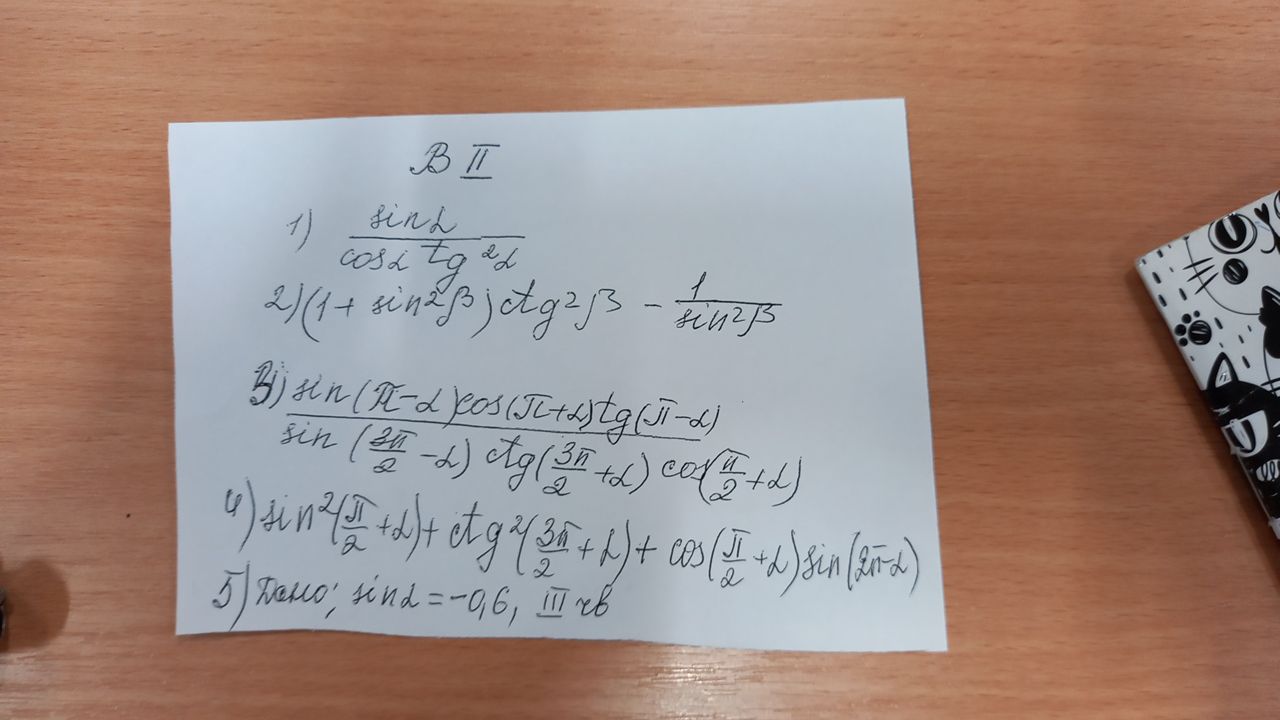 В II
1) sinα / cosα tg²α
2) (1 + sin²β) ctg²β - 1 / sin²β
3) sin(π-α) cos(π+α) tg(π-α) / sin(3π/2 -α) ctg(3π/2 +α) cos(π/2 +α)
4) sin²(π/2 +α) + ctg²(3π/2 +α) + cos(π/2 +α) sin(2π-α)
5) Дано: sinα = -0,6, III чв